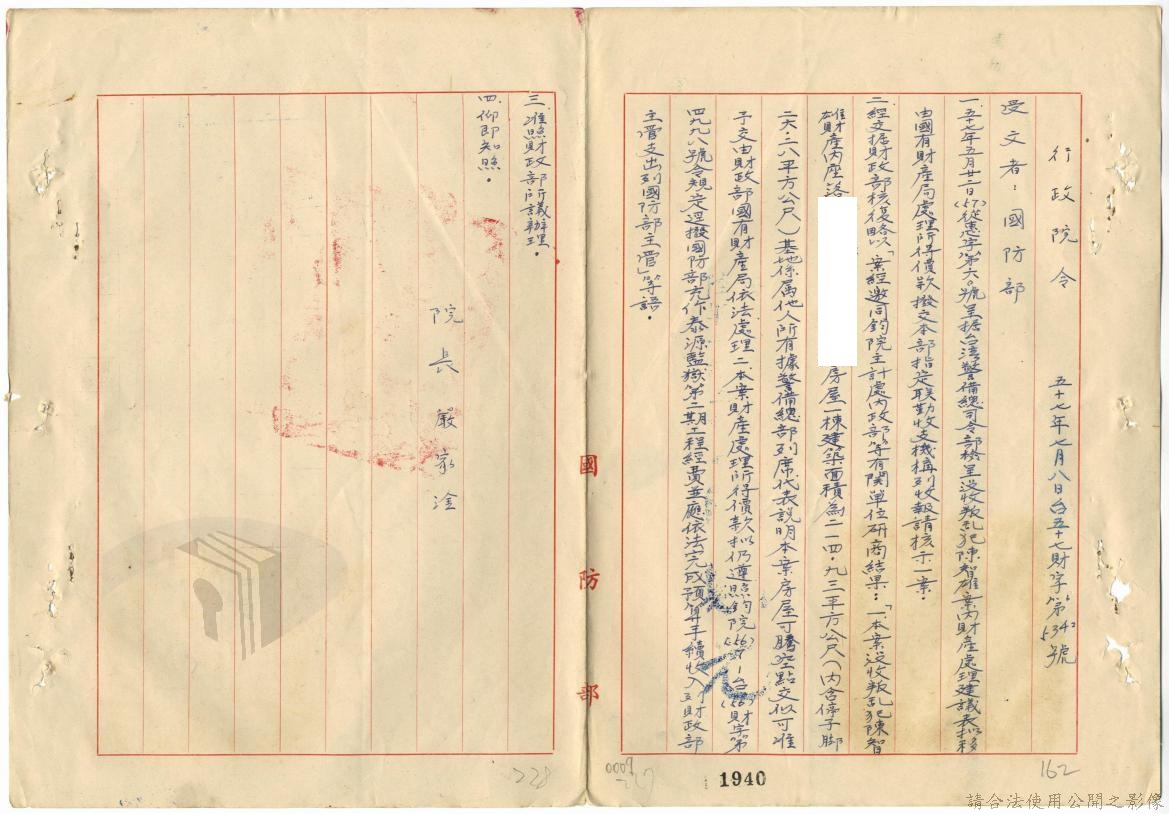 行政院令
五十七年七月八日台五十七財字第5342號
受文者：國防部
一、五十七年五月廿二日(57)從志字第六〇號呈据台湾警備總司令部檢呈沒收叛乱犯陳智雄案內財產處理建議表拟移
由國有財產局處理所得價款撥交本部指定联勤收支機構列收報請核示一案。
二、經交据財政部核復略以「案經邀同鈞院主計處內政部等有関單位研商結果：「一本案沒收叛乱犯陳智
雄財產內座落
房屋一棟建築面積為二一四・九三平方公尺（內含停子脚
二六・二八平方公尺）基地係属他人所有據警備總部列席代表說明本案房屋可騰空點交似可准
予交由財政部國有財產局依法處理二、本案財產處理所得價款拟仍遵照鈞院(56)台(56)財字第
四九九八號令規定逕撥國防部充作泰源監獄第二期工程經費並應依法完成預算手續收入列財政部
主管支出列國防部主管」等語。
三、准照財政部所議辦理。
四、仰即知照。
院長 嚴家淦
國防部
228
0009
1940
162
請合法使用公開之影像